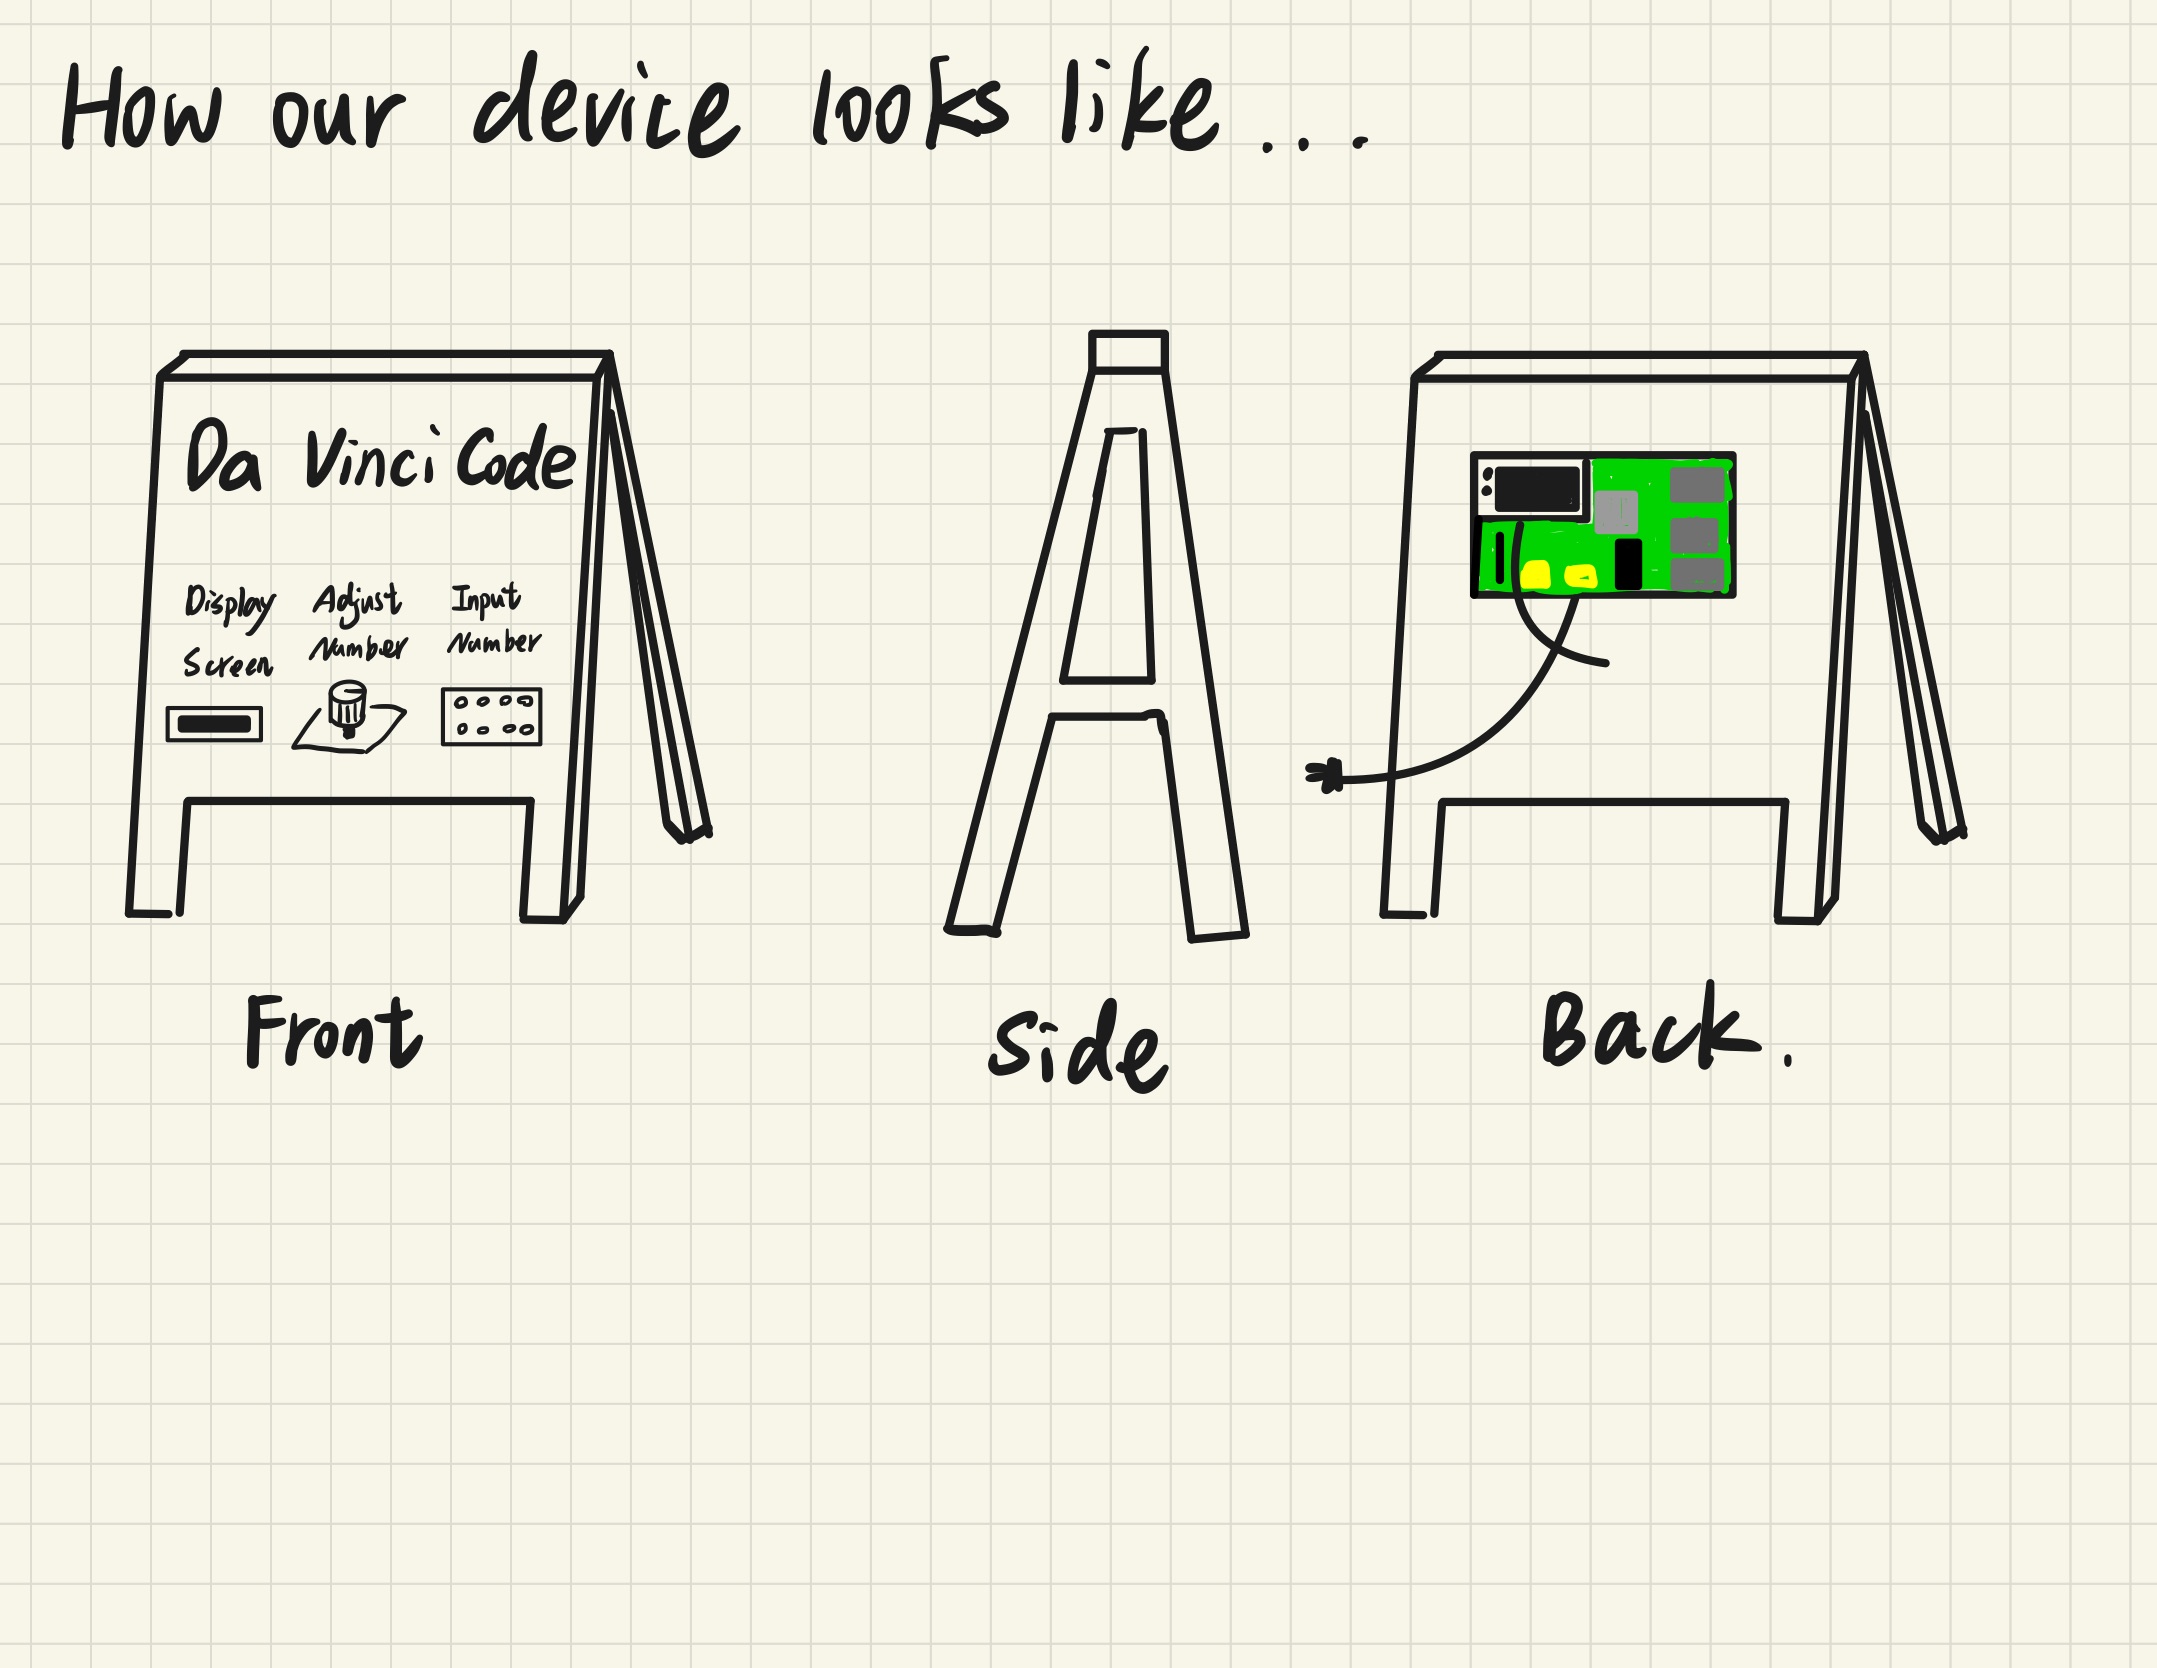 How our device looks like...
Da Vinci Code
Display
Screen
Adjust
Number
Input
Number
Front
Side
Back.